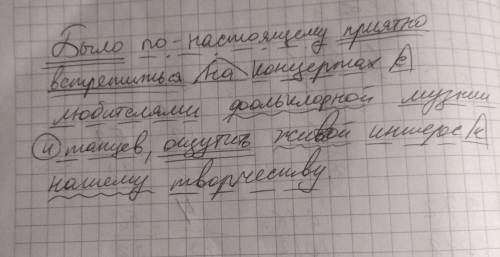 Было по-настоящему приятно
встретиться на концертах к
любителями фольклорной музыки
и танцев, ощутить живой интерес к
нашему творчеству.